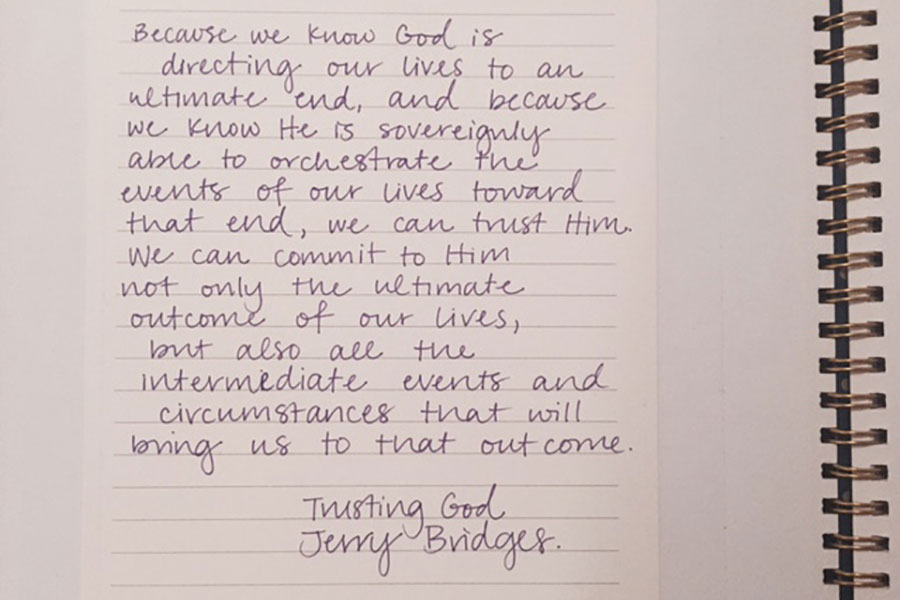 Because we know God is
directing our lives to an
ultimate end, and because
we know He is sovereignly
able to orchestrate the
events of our lives toward
that end, we can trust Him.
We can commit to Him
not only the ultimate
outcome of our lives,
but also all the
intermediate events and
circumstances that will
bring us to that outcome.
Trusting God
Jerry Bridges.